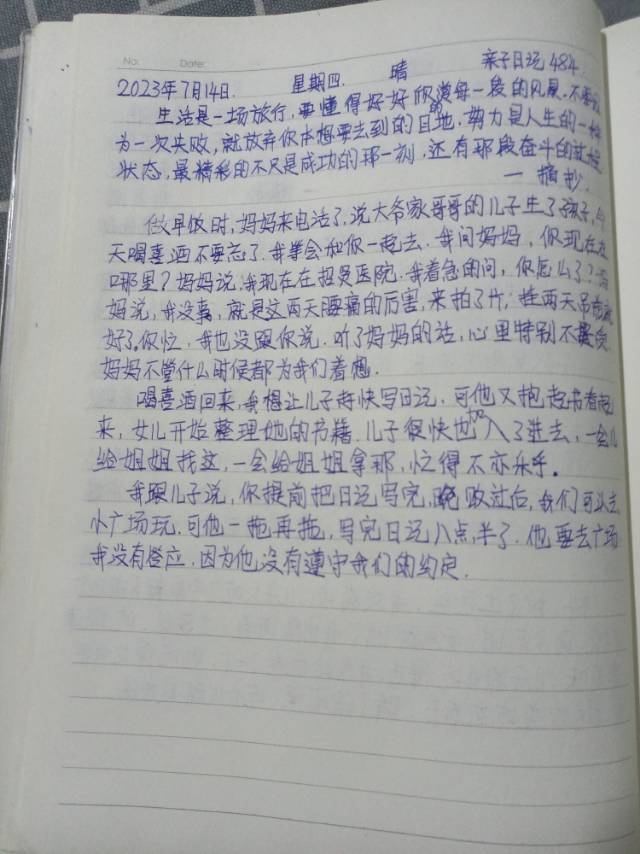 No. Date.
2023年7月14日. 星期四. 晴 亲子日记484.
生活是一场旅行,要懂得好好欣赏每一段的风景,不要
为一次失败,就放弃你本想要去到的目地,努力是人生的一种
状态,最精彩的不只是成功的那一刻,还有那段奋斗的过程
一摘抄.
做早饭时,妈妈来电话了,说大爷家哥哥的儿子生了孩子,今
天喝喜酒不要忘了.我等会和你一起去.我问妈妈,你现在在
哪里?妈妈说,我现在在招贤医院.我着急的问,你怎么了?妈
妈说,我没事,就是这两天腰痛的厉害,来拍了片,挂两天吊瓶就
好了.你忙.我也没跟你说.听了妈妈的话,心里特别不
妈妈不管什么时候都为我们着想.
喝喜酒回来,我想让儿子待快写日记,可他又抱起书看起
来,女儿开始整理她的书籍.儿子很快也加入了进去,一会儿
给姐姐找这,一会给姐姐拿那,忙得不亦乐乎.
我跟儿子说,你提前把日记写完,晚饭过后,我们可以去
小广场玩.可他一拖再拖,写完日记八点半了.他要去广场
我没有答应.因为他没有遵守我们的约定.